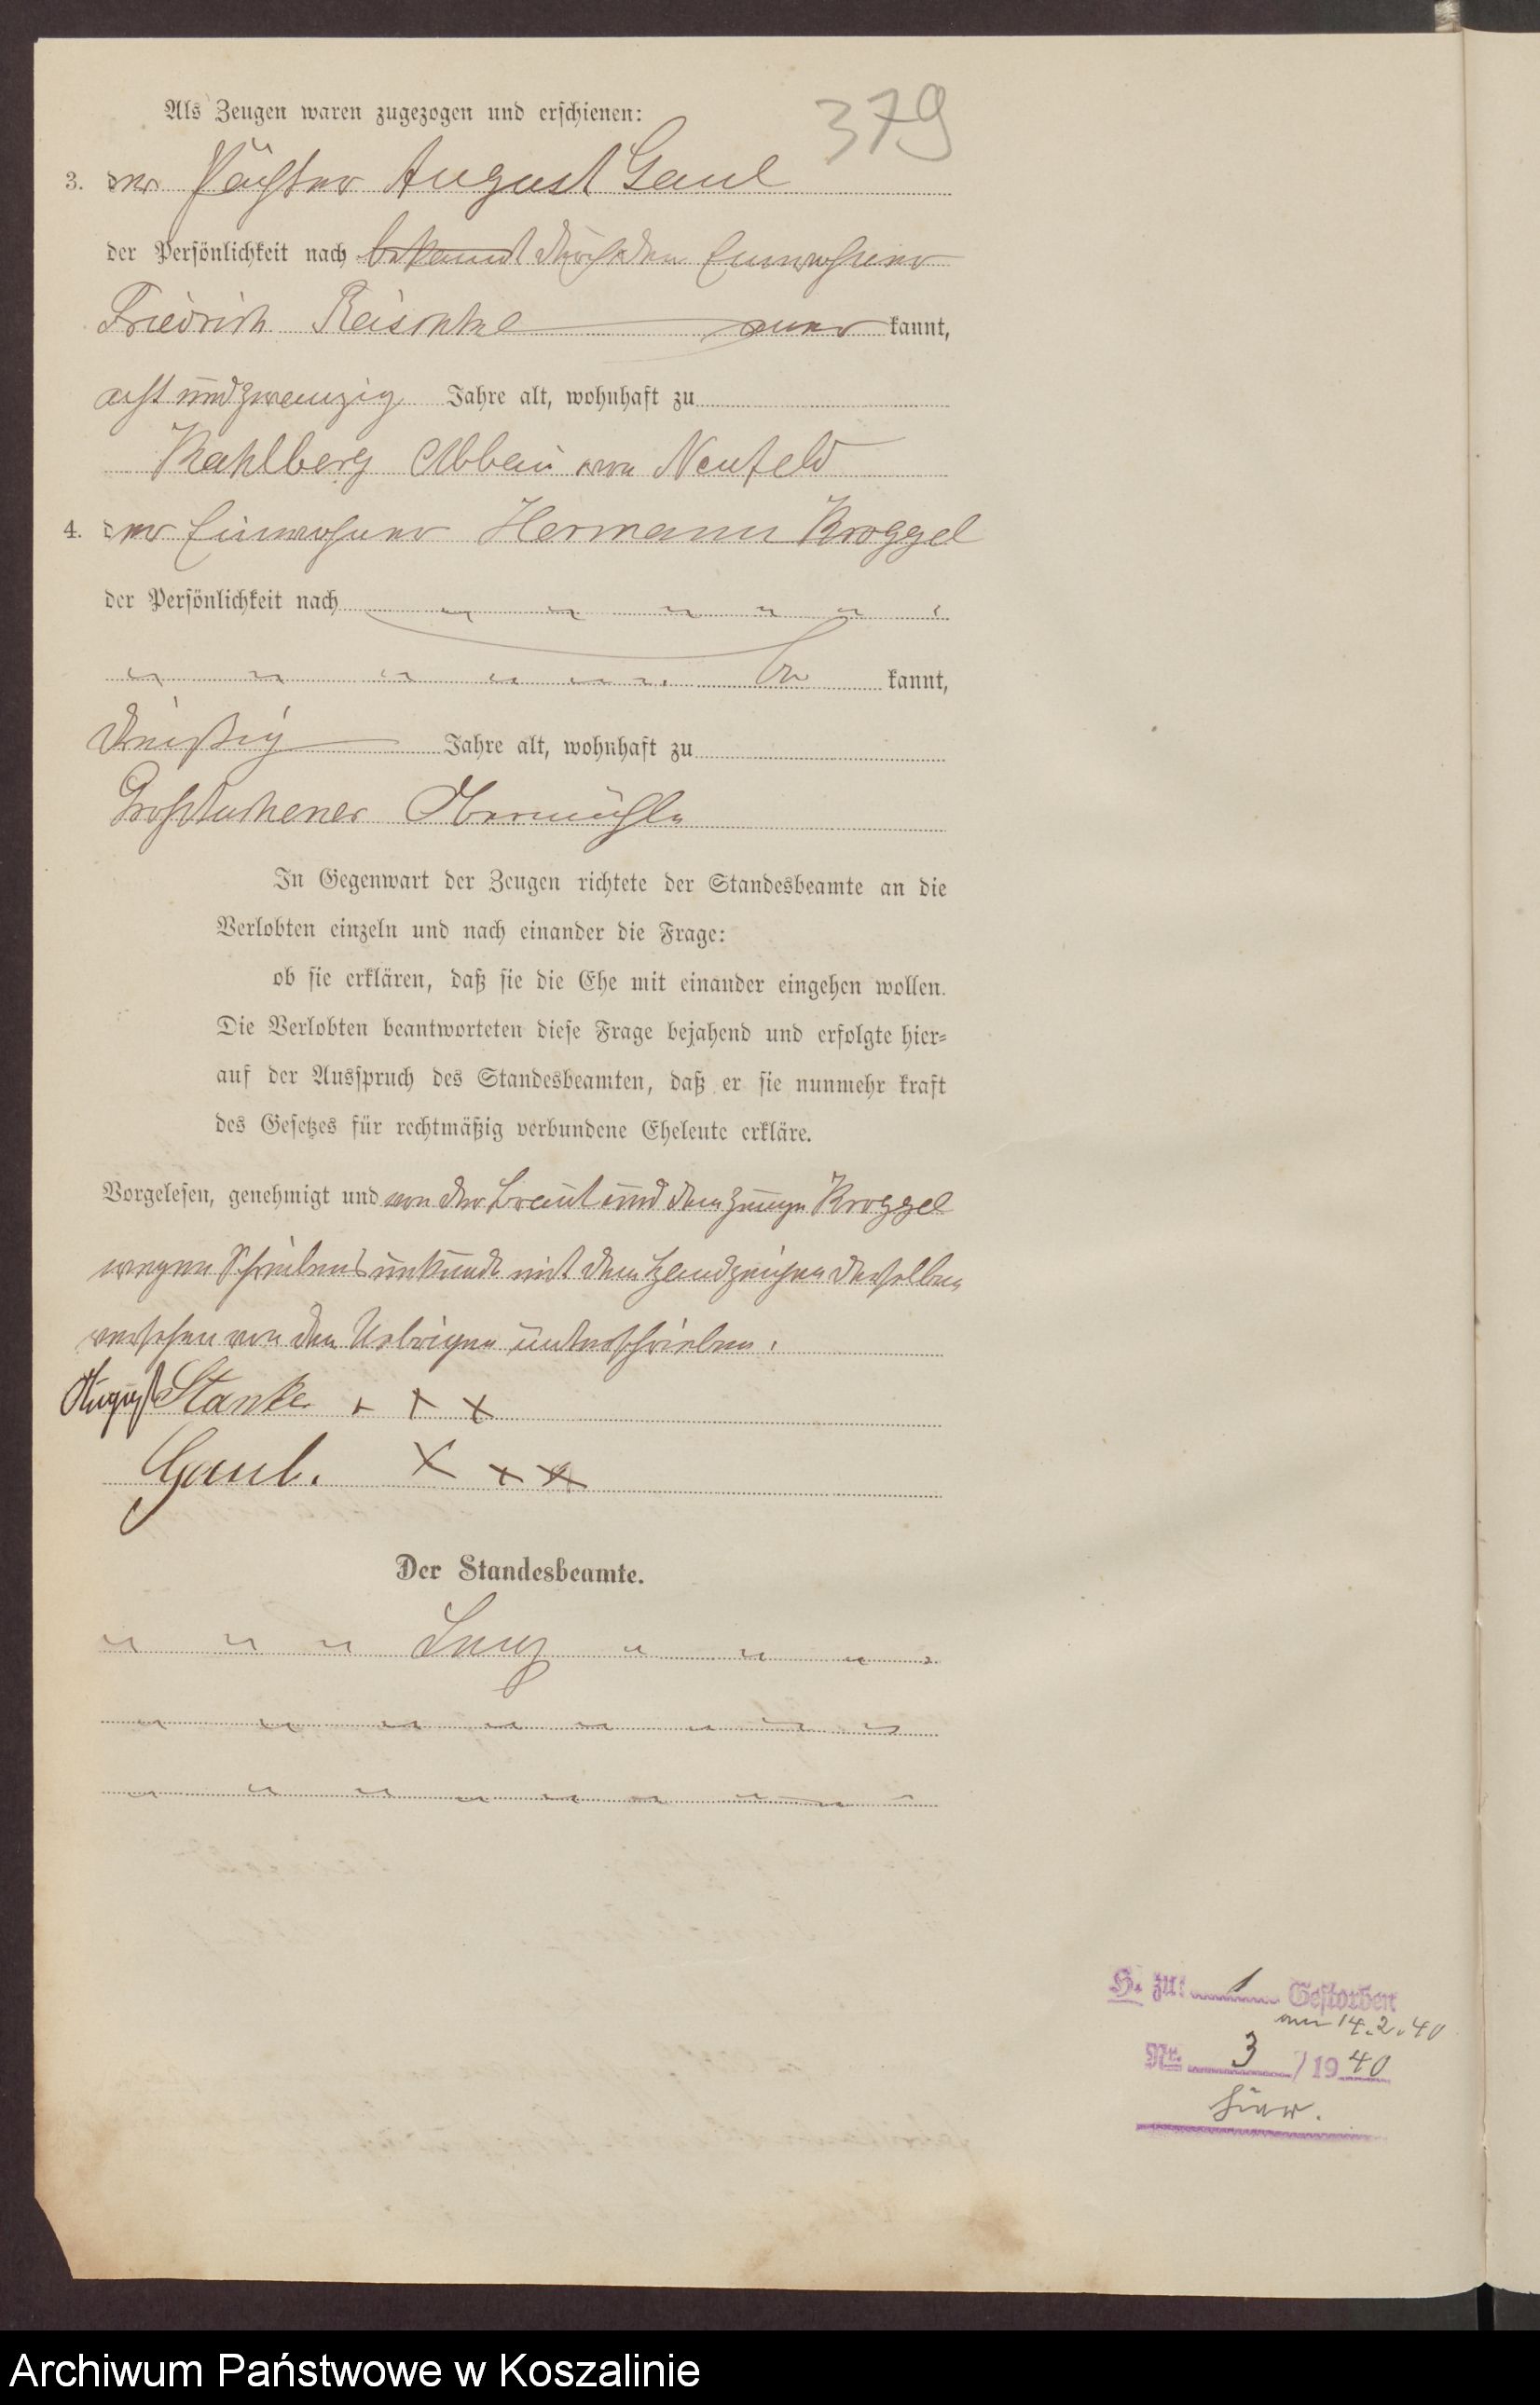 379
Als Zeugen waren zugezogen und erschienen:
3. der Pächter August Gaul
der Persönlichkeit nach bekannt durch den Einwohner
Friedrich Reischke aner kannt,
acht und zwanzig Jahre alt, wohnhaft zu
Kahlberg Abbau von Neufeld
4. der Einwohner Hermann Kroggel
der Persönlichkeit nach
be kannt,
dreißig Jahre alt, wohnhaft zu
Großtuchener Obermühle
In Gegenwart der Zeugen richtete der Standesbeamte an die
Verlobten einzeln und nach einander die Frage:
ob sie erklären, daß sie die Ehe mit einander eingehen wollen.
Die Verlobten beantworteten diese Frage bejahend und erfolgte hier-
auf der Ausspruch des Standesbeamten, daß er sie nunmehr kraft
des Gesetzes für rechtmäßig verbundene Eheleute erkläre.
Vorgelesen, genehmigt und von der Braut und dem Zeugen Kroggel
wegen Schreibens unkunde mit dem Handzeichen derselben
versehen von den Uebrigen unterschrieben.
August Stanke + + +
Gaul. + + +
Der Standesbeamte.
H. zu: 1 Gestorben
am 14.2.40
Nr. 3 / 19 40
hier.
Archiwum Państwowe w Koszalinie